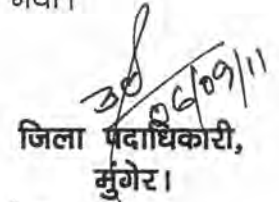 गया।
06/09/11
जिला पदाधिकारी,
मुंगेर।